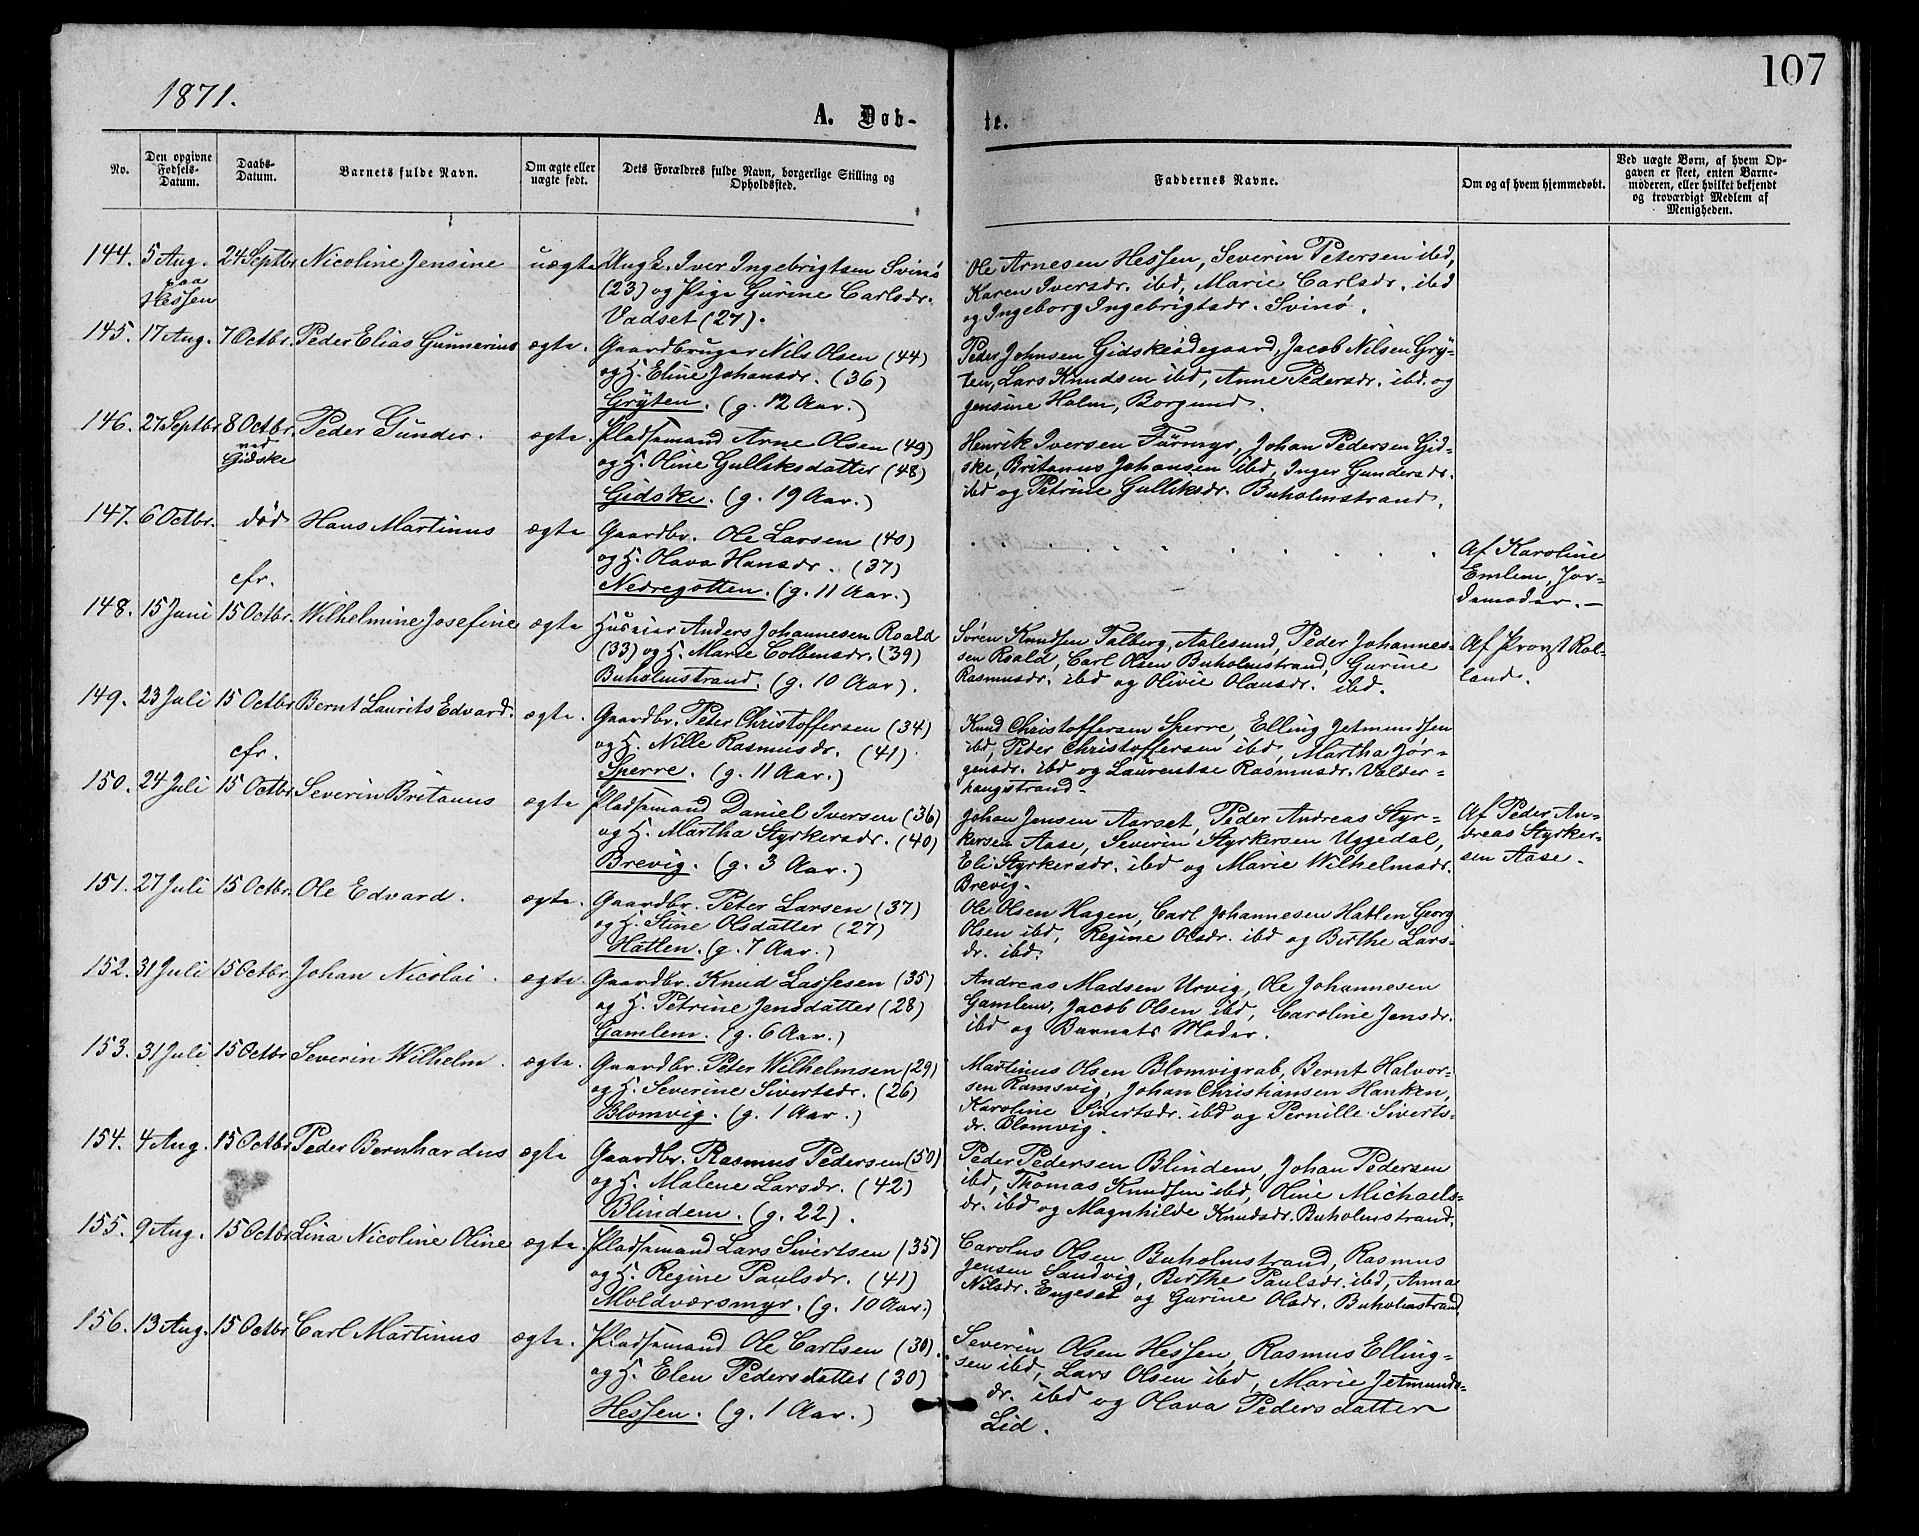 1871.
107
A. Døb-
te.
No.
Den opgivne Fødsels-Datum.
Daabs-Datum.
Barnets fulde Navn.
Om ægte eller uægte født.
Dets Forældres fulde Navn, borgerlige Stilling og Opholdssted.
Faddernes Navne.
Om og af hvem hjemmedøbt.
Ved uægte Børn, af hvem Opgaven er skeet, enten Barnemoderen, eller hvilket bekjendt og troværdigt Medlem af Menigheden.
144. 5 Aug. paa Hessen 24 Septbr Nicoline Jensine uægte Ung E. Iver Ingebrigtsen Svinø
(23) og Pige Gurine Carlsdr.
Vadset (27).
Ole Arnesen Hessen, Severin Petersen ibd,
Karen Iversdr. ibd, Marie Carlsdr. ibd
og Ingeborg Ingebrigtsdr. Svinø.
145. 17 Aug. 7 Octbr. Peder Elias Gunnerius ægte. Gaardbruger Nils Olsen (44)
og H. Eline Johansdr. (36)
Gryten. (g. 12 Aar.)
Peder Johnsen Gidskeødegaard, Jacob Nilsen Gry-
ten, Lars Knudsen ibd, Anne Pedersdr. ibd. og
Jensine Holm, Borgund.
146. 27 Septbr 8 Octbr. ved Gidske Peder Gunder. ægte. Pladsemand Arne Olsen (49)
og H. Oline Gulliksdatter (48)
Gidske. (g. 19 Aar.)
Henrik Iversen Furmyr, Johan Pedersen Gid-
ske, Britanus Johansen ibd, Inger Gundersdr.
ibd og Petrine Gulliksdr. Buholmstrand.
147. 6 Octbr. død Hans Martinus ægte Gaardbr. Ole Larsen (40)
og H. Olava Hansdr. (37)
Nedregotten. (g. 11 Aar.)
Af Karoline
Emlem, Jor-
demoder. —
cfr.
148. 15 Juni 15 Octbr. Wilhelmine Josefine ægte Huseier Anders Johannesen Roald
(33) og H. Marie Colbensdr. (39)
Buholmstrand. (g. 10 Aar).
Søren Knudsen Talberg, Aalesund, Peder Johannes-
sen Roald, Carl Olsen Buholmstrand, Gurine
Rasmusdr. ibd og Olivie Olausdr. ibd.
Af Provst Rol-
land.
149. 23 Juli 15 Octbr Bernt Laurits Edvard. ægte. Gaardbr. Peter Christoffersen (34)
og H. Nille Rasmusdr. (41).
Sperre. (g. 11 Aar.)
Knud Christoffersen Sperre, Elling Jetmundsen
ibd, Peder Christoffersen ibd, Martha Jør-
gensdr. ibd og Laurentse Rasmusdr. Valder-
haugstrand.
cfr.
150. 24 Juli 15 Octbr Severin Britanus ægte Pladsemand Daniel Iversen (36)
og H. Martha Styrkersdr. (40)
Brevig. (g. 3 Aar.)
Johan Jensen Aarset, Peder Andreas Styr-
kersen Aase, Severin Styrkersen Uggedal,
Eli Styrkersdr. ibd og Marie Wilhelmsdr.
Brevig.
Af Peder An-
dreas Styrker-
sen Aase.
151. 27 Juli 15 Octbr. Ole Edvard. ægte. Gaardbr. Peter Larsen (37)
og H. Stine Olsdatter (27)
Hatlen. (g. 7 Aar.)
Ole Olsen Hagen, Carl Johannesen Hatlen, Georg
Olsen ibd, Regine Olsdr. ibd og Birthe Lars-
dr. ibd.
152. 31 Juli 15 Octbr. Johan Nicolai. ægte. Gaardbr. Knud Lassesen (35)
og H. Petrine Jensdatter (28)
Gamlem. (g. 6 Aar.)
Andreas Madsen Urvig, Ole Johannesen
Gamlem, Jacob Olsen ibd, Caroline Jensdr.
ibd og Barnets Moder.
153. 31 Juli 15 Octbr Severin Wilhelm. ægte. Gaardbr. Peter Wilhelmsen (29)
og H. Severine Sivertsdr. (26)
Blomvig. (g. 1 Aar.)
Martinus Olsen Blomvigrab, Bernt Halvor-
sen Ramsvig, Johan Christiansen Hanken,
Karoline Sivertsdr. ibd og Pernille Siverts-
dr. Blomvig.
154. 4 Aug. 15 Octbr Peder Bernhardus ægte Gaardbr. Rasmus Pedersen (50)
og H. Malene Larsdr. (42)
Blindem. (g. 22).
Peder Pedersen Blindem, Johan Pedersen
ibd, Thomas Knudsen ibd, Oline Michaels-
dr. ibd og Magnhilde Knudsdr. Buholmstrand.
155. 9 Aug. 15 Octbr Lina Nicoline Oline ægte. Pladsemand Lars Sivertsen (35)
og H. Regine Paulsdr. (41)
Moldværsmyr. (g. 10 Aar.)
Carolus Olsen Buholmstrand, Rasmus
Jensen Sandvig, Birthe Paulsdr. ibd, Anna
Nilsdr. Engeset og Gurine Olsdr. Buholmstrand
156. 13 Aug. 15 Octbr. Carl Martinus ægte. Pladsemand Ole Carlsen (30).
og H. Elen Pedersdatter (30)
Hessen. (g. 1 Aar.)
Severin Olsen Hessen, Rasmus Elling-
sen ibd, Lars Olsen ibd, Marie Jetmunds-
dr. ibd og Olava Pedersdatter
Lid.